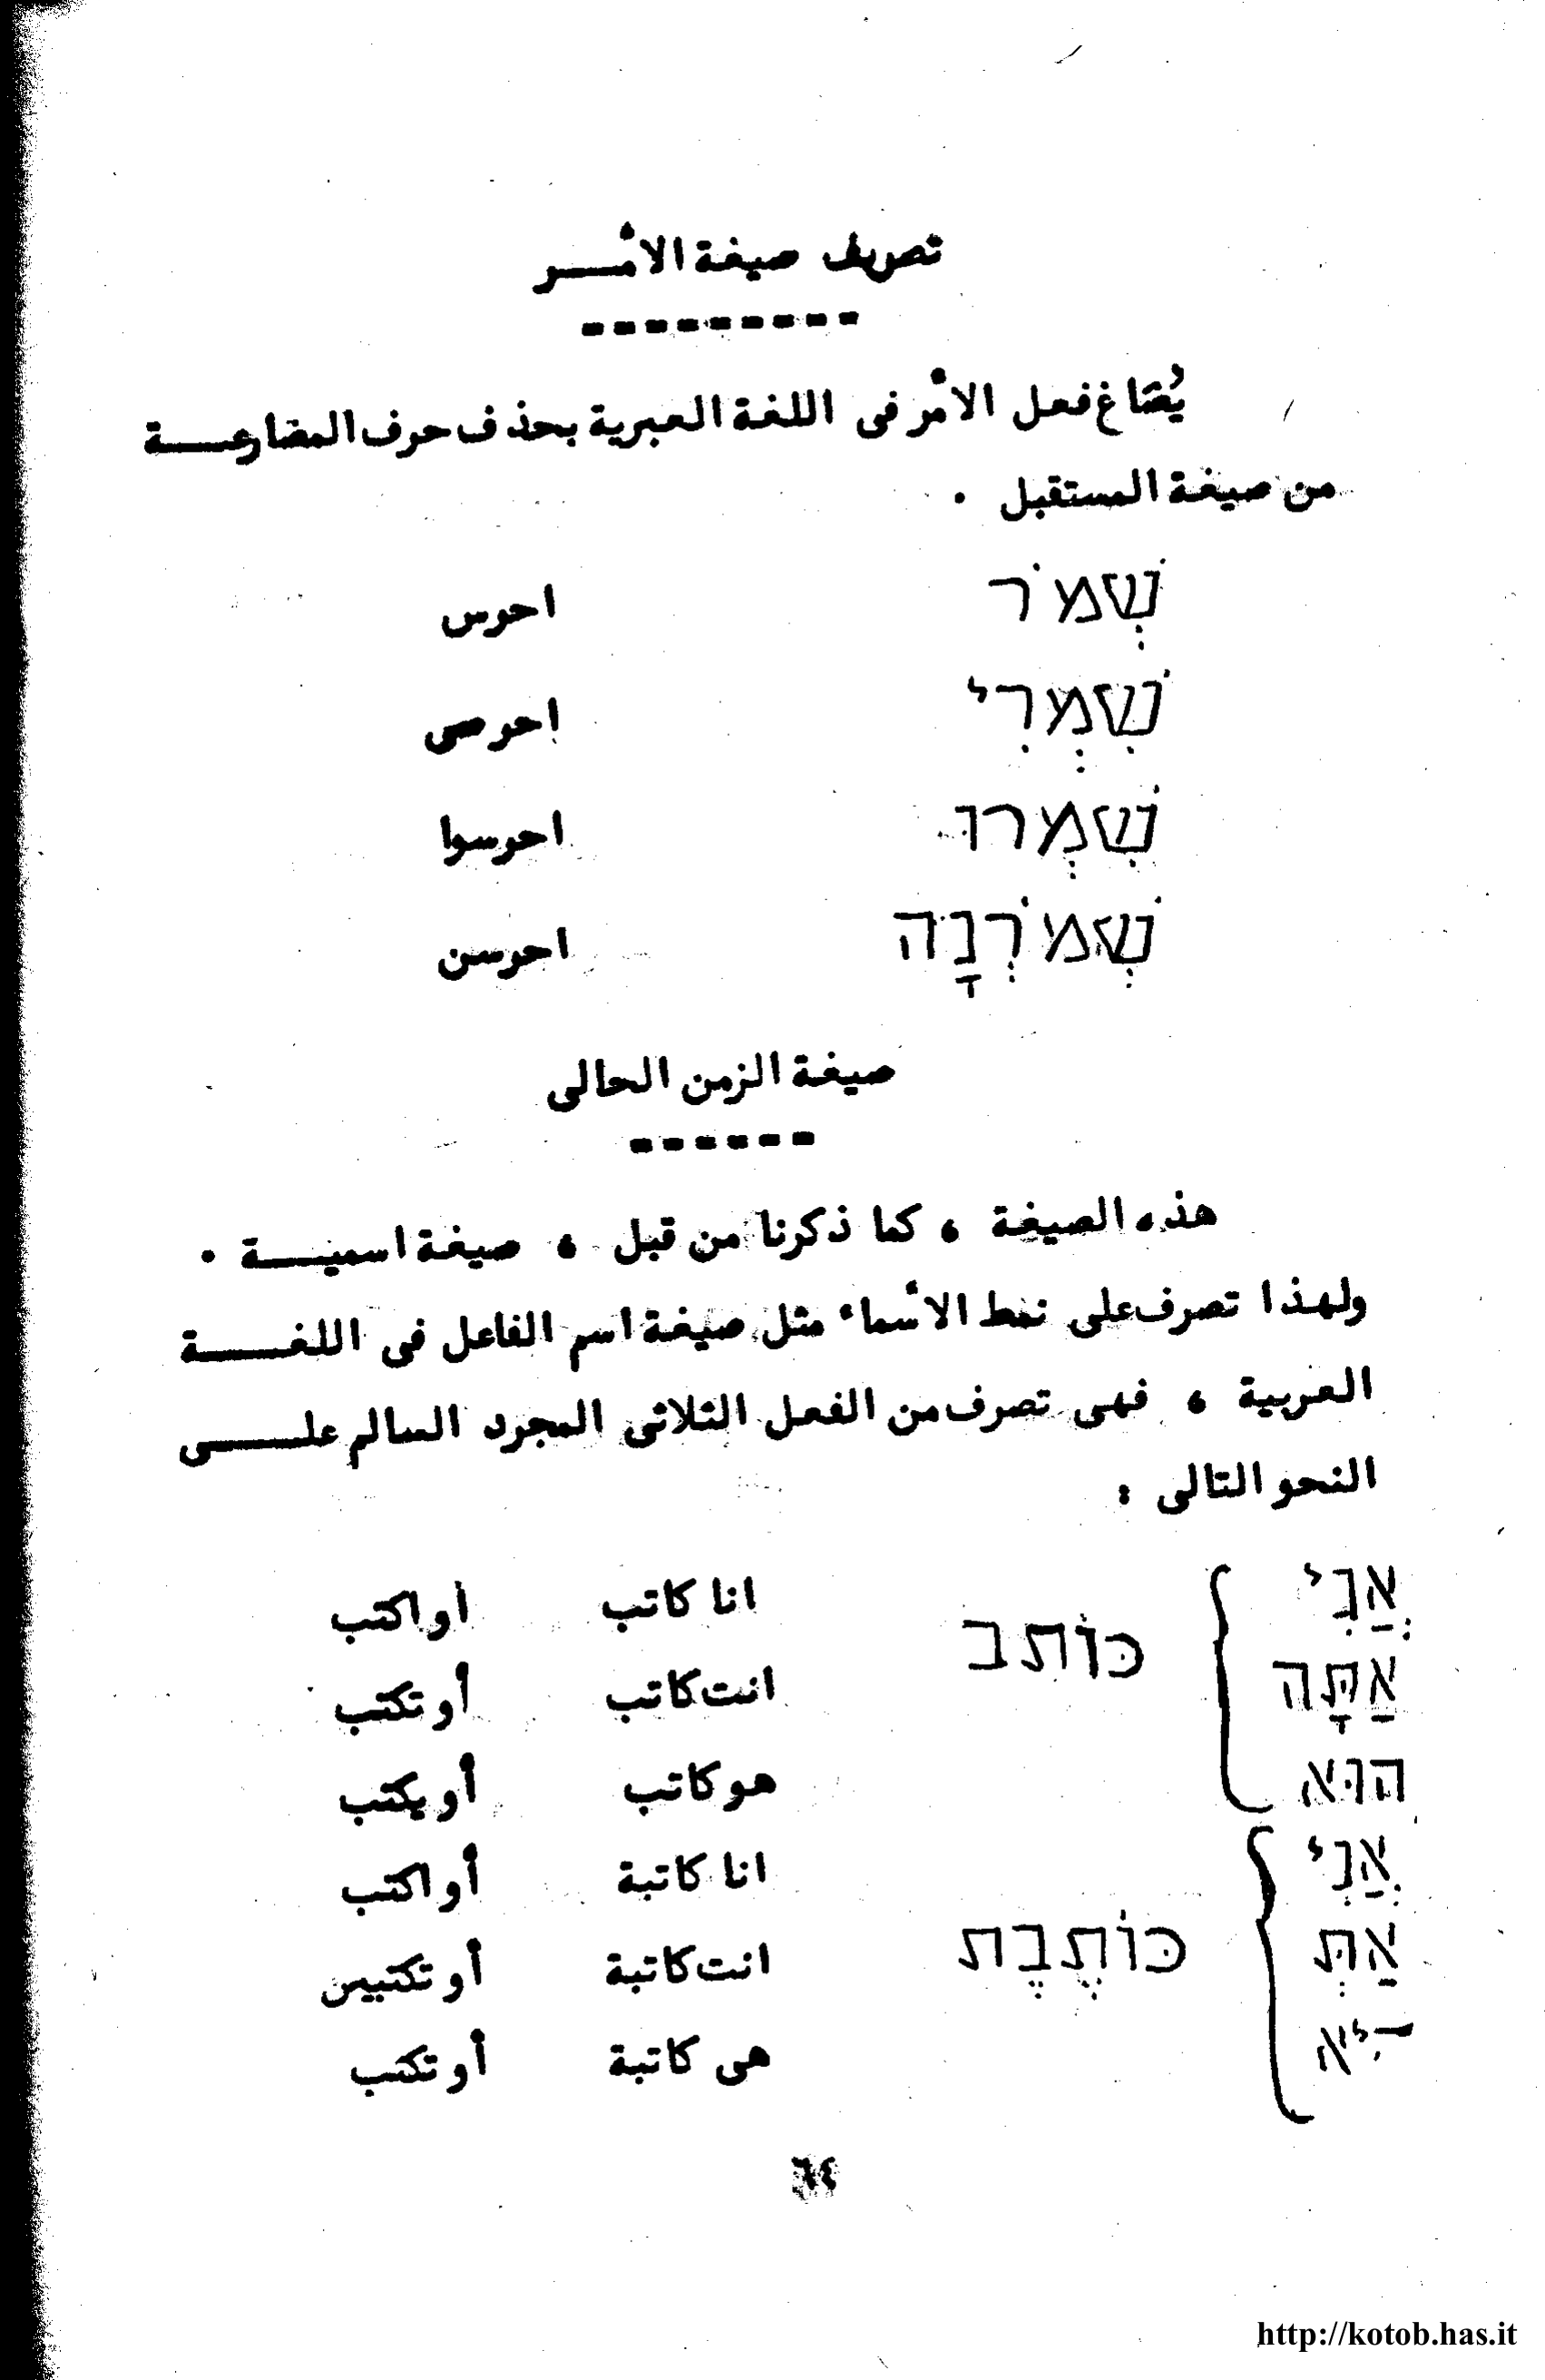 تصريف صيغة الأمـــر
يُصاغ فعل الأمر فى اللغة العبرية بحذف حرف المضارعـــة
من صيغة المستقبل .
שְׁמֹר احرس
שִׁמְרִי احرسى
שִׁמְרוּ احرسوا
שְׁמֹרְנָה احرسن
صيغة الزمن الحالى
هذه الصيغة ، كما ذكرنا من قبل ، صيغة اسميـــة .
ولهذا تصرف على نمط الأسماء مثل صيغة اسم الفاعل فى اللغـــة
العربية ، فهى تصرف من الفعل الثلاثى المجرد السالم علـــى
النحو التالى :
אֲנִי انا كاتب أو اكتب
אַתָּה כּוֹתב انت كاتب أو تكتب
הוּא هو كاتب أو يكتب
אֲנִי انا كاتبة أو اكتب
אַתְּ כּוֹתֶבֶת انت كاتبة أو تكتبين
هى كاتبة أو تكتب
٦٤
http://kotob.has.it